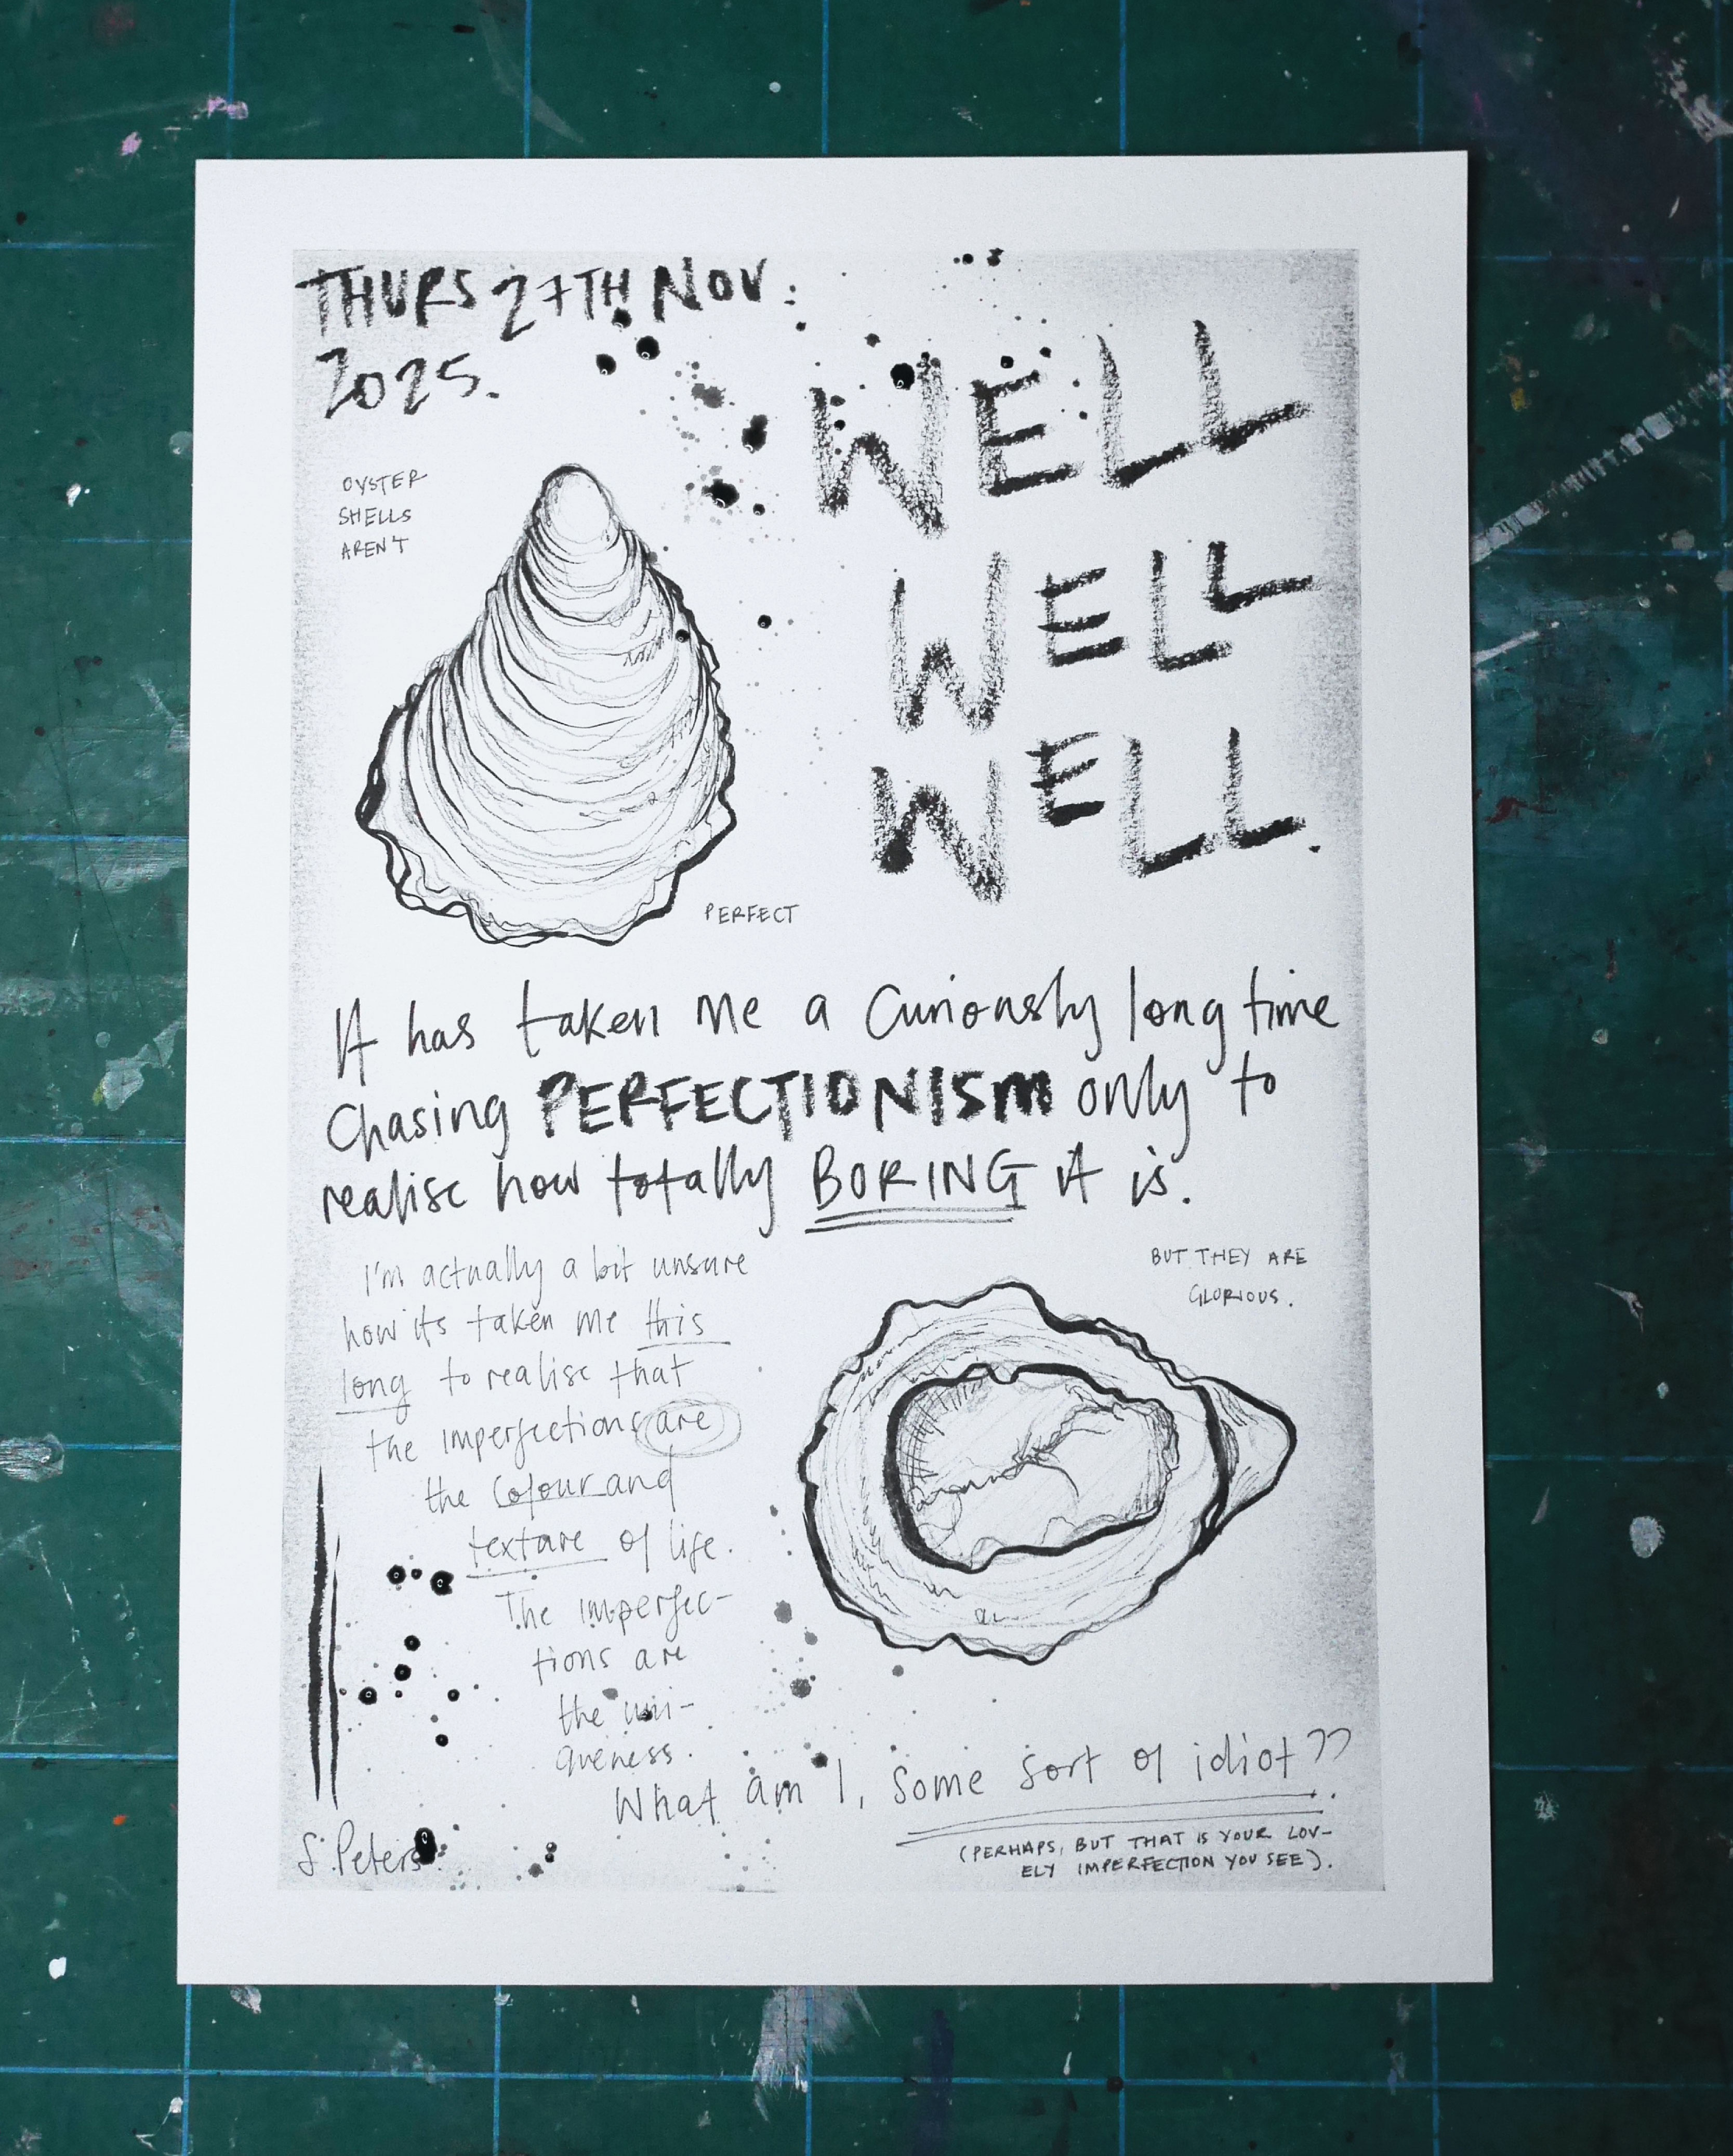 THURS 27TH NOV.
2025.
WELL
WELL
WELL.
OYSTER
SHELLS
AREN'T
PERFECT
It has taken me a curiously long time
chasing PERFECTIONISM only to
realise how totally BORING it is.
I'm actually a bit unsure
how its taken me this
long to realise that
the imperfections are
the colour and
texture of life.
The imperfec-
tions are
the uni-
queness.
BUT THEY ARE
GLORIOUS.
What am I, some sort of idiot??
(PERHAPS, BUT THAT IS YOUR LOV-
ELY IMPERFECTION YOU SEE).
S. Peters.